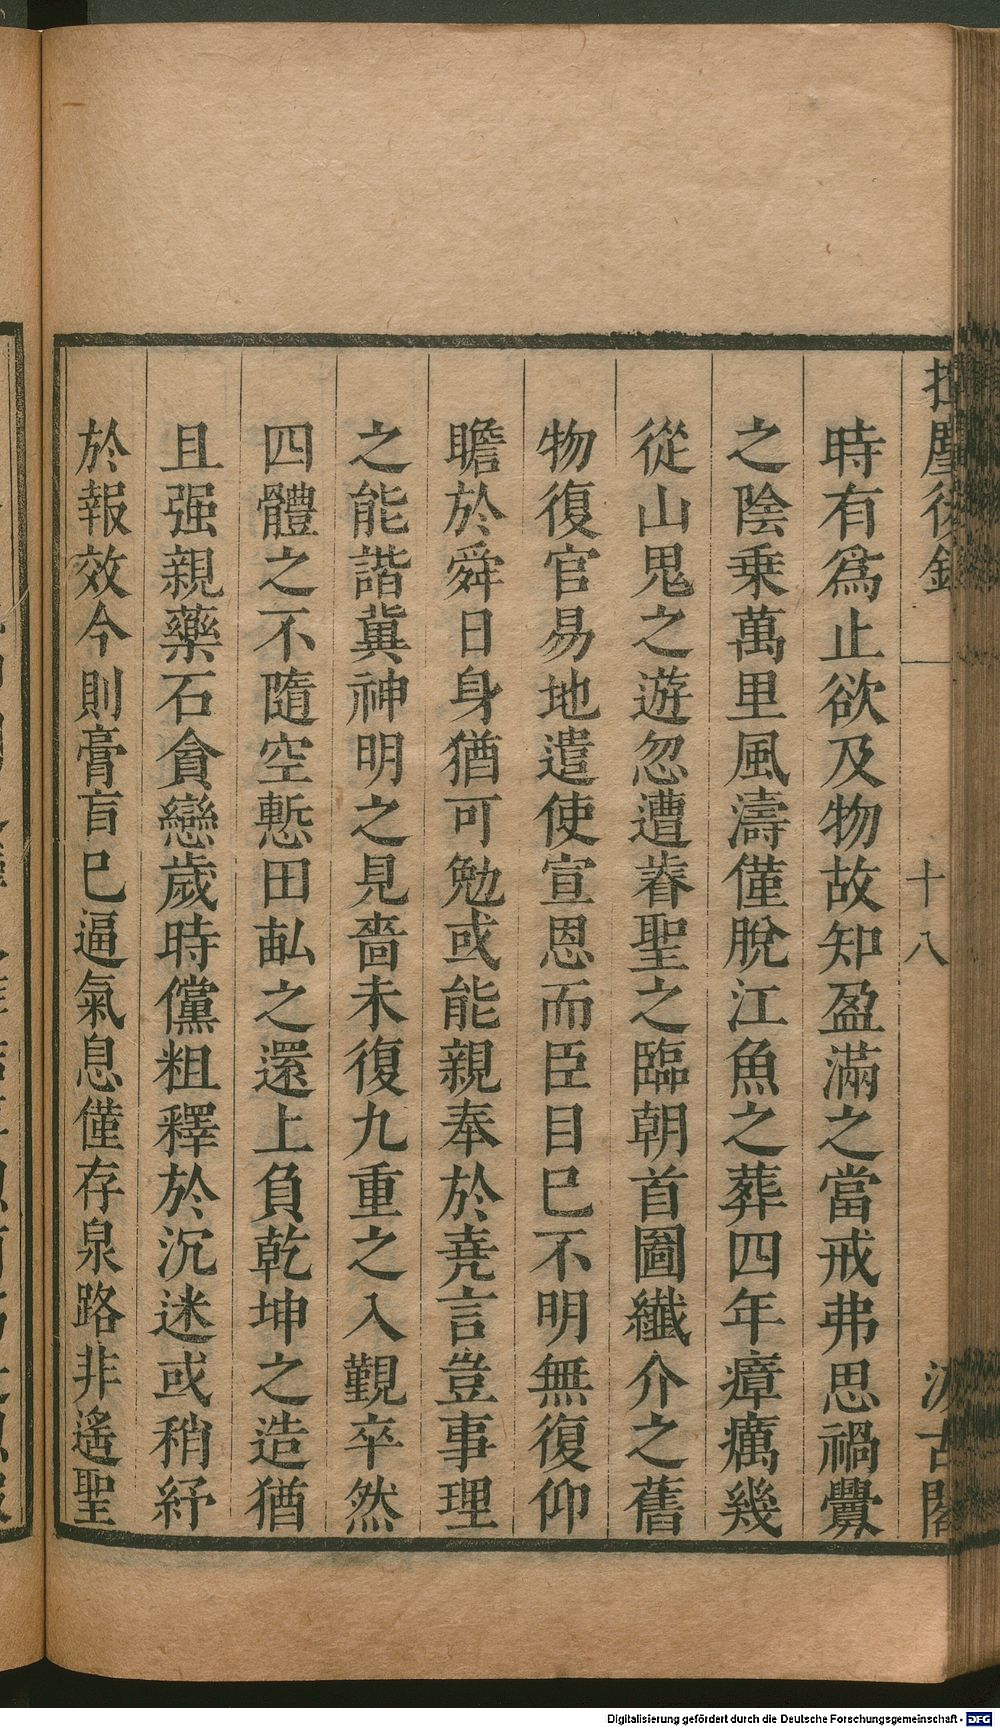 揮麈後錄
十八
汲古閣
時有爲止欲及物故知盈滿之當戒弗思禍釁
之陰乗萬里風濤僅脫江魚之葬四年瘴癘幾
從山鬼之遊忽遭蓍聖之臨朝首圖纎介之舊
物復官易地遣使宣恩而臣目巳不明無復仰
瞻於舜日身猶可勉或能親奉於堯言豈事理
之能諧冀神明之見嗇未復九重之入覲卒然
四體之不隨空慙田畆之還上負乾坤之造猶
且强親藥石貪戀歲時儻粗釋於沉迷或稍紓
於報效今則膏肓巳逼氣息僅存泉路非遙聖
Digitalisierung gefördert durch die Deutsche Forschungsgemeinschaft - DFG